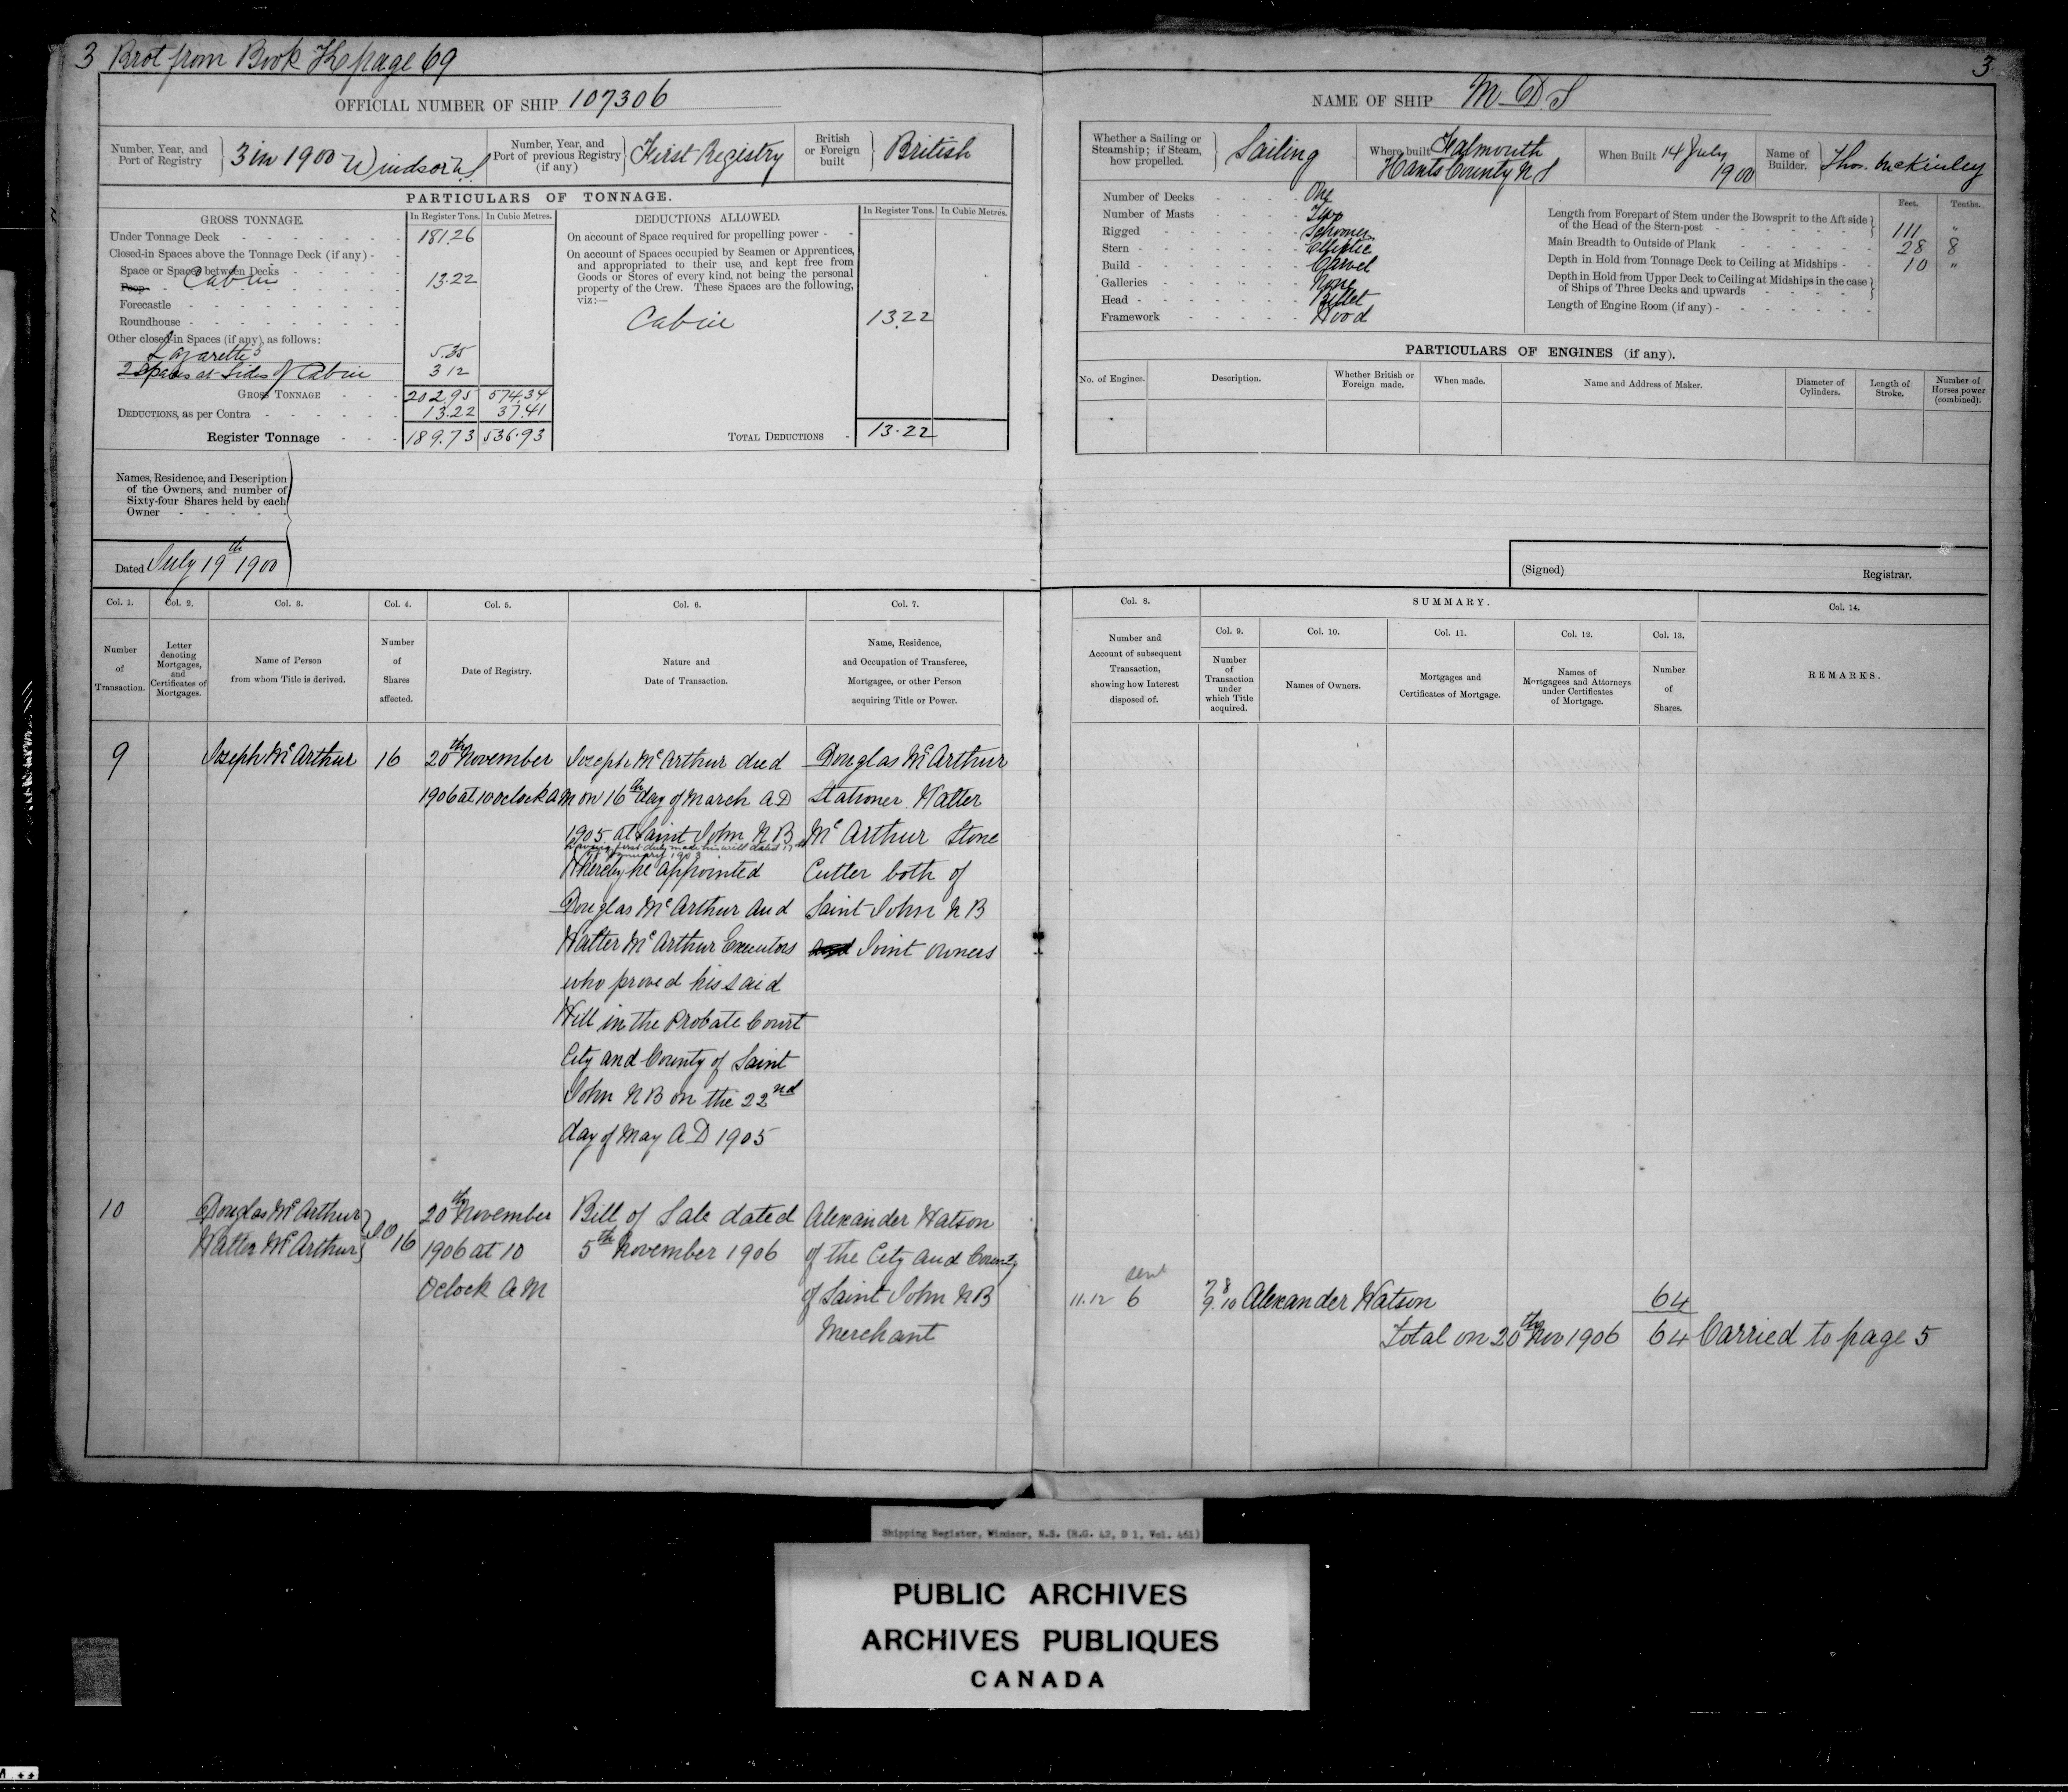 3 Brot from Book K page 69
3
OFFICIAL NUMBER OF SHIP 107306
NAME OF SHIP M D S
Number, Year, and Port of Registry } 3 in 1900 Windsor N.S.
Number, Year, and Port of previous Registry (if any) } First Registry
British or Foreign built } British
Whether a Sailing or Steamship; if Steam, how propelled. } Sailing
Where built Falmouth Hants County N S
When Built 14 July 1900
Name of Builder. } Thos. McKinley
PARTICULARS OF TONNAGE.
GROSS TONNAGE.
In Register Tons. In Cubic Metres.
Under Tonnage Deck - 181.26
Closed-in Spaces above the Tonnage Deck (if any) -
Space or Spaces between Decks -
Poop - Cabin 13.22
Forecastle -
Roundhouse -
Other closed-in Spaces (if any), as follows:
Lazarette 5.35
2 Spaces at Sides of Cabin 3 12
GROSS TONNAGE - 202.95 574.34
DEDUCTIONS, as per Contra - 13.22 37.41
Register Tonnage - 189.73 536.93
DEDUCTIONS ALLOWED.
In Register Tons. In Cubic Metres.
On account of Space required for propelling power -
On account of Spaces occupied by Seamen or Apprentices,
and appropriated to their use, and kept free from
Goods or Stores of every kind, not being the personal
property of the Crew. These Spaces are the following,
viz:—
Cabin 13.22
TOTAL DEDUCTIONS - 13.22
Number of Decks - One
Number of Masts - Two
Rigged - Schooner
Stern - Elliptic
Build - Carvel
Galleries - None
Head - Billet
Framework - Wood
Feet. Tenths.
Length from Forepart of Stem under the Bowsprit to the Aft side
of the Head of the Stern-post - } 111 "
Main Breadth to Outside of Plank - 28 8
Depth in Hold from Tonnage Deck to Ceiling at Midships - 10 "
Depth in Hold from Upper Deck to Ceiling at Midships in the case
of Ships of Three Decks and upwards - }
Length of Engine Room (if any) -
PARTICULARS OF ENGINES (if any).
No. of Engines.
Description.
Whether British or Foreign made.
When made.
Name and Address of Maker.
Diameter of Cylinders.
Length of Stroke.
Number of Horses power (combined).
Names, Residence, and Description
of the Owners, and number of
Sixty-four Shares held by each
Owner -
Dated July 19th 1900
(Signed) Registrar.
Col. 1.
Number of Transaction.
Col. 2.
Letter denoting Mortgages, and Certificates of Mortgages.
Col. 3.
Name of Person from whom Title is derived.
Col. 4.
Number of Shares affected.
Col. 5.
Date of Registry.
Col. 6.
Nature and Date of Transaction.
Col. 7.
Name, Residence, and Occupation of Transferee, Mortgagee, or other Person acquiring Title or Power.
Col. 8.
Number and Account of subsequent Transaction, showing how Interest disposed of.
SUMMARY.
Col. 9.
Number of Transaction under which Title acquired.
Col. 10.
Names of Owners.
Col. 11.
Mortgages and Certificates of Mortgage.
Col. 12.
Names of Mortgagees and Attorneys under Certificates of Mortgage.
Col. 13.
Number of Shares.
Col. 14.
REMARKS.
9
Joseph McArthur
16
20th November
1906 at 10 oclock AM
Joseph McArthur died
on 16th day of March A D
1905 at Saint John N B
having first duly made his will dated 17th
January 1903
Whereby he appointed
Douglas McArthur and
Walter McArthur Executors
who proved his said
Will in the Probate Court
City and County of Saint
John N B on the 22nd
day of May A D 1905
Douglas McArthur
Stationer Walter
McArthur Stone
Cutter both of
Saint John N B
and Joint owners
10
Douglas McArthur
Walter McArthur } J O
16
20th November
1906 at 10
Oclock AM
Bill of Sale dated
5th November 1906
Alexander Watson
of the City and County
of Saint John N B
Merchant
11.12 6
7 8
9.10
Alexander Watson
64
Total on 20th Nov 1906
64
Carried to page 5
Shipping Register, Windsor, N.S. (R.G. 42, D 1, Vol. 461)
PUBLIC ARCHIVES
ARCHIVES PUBLIQUES
CANADA